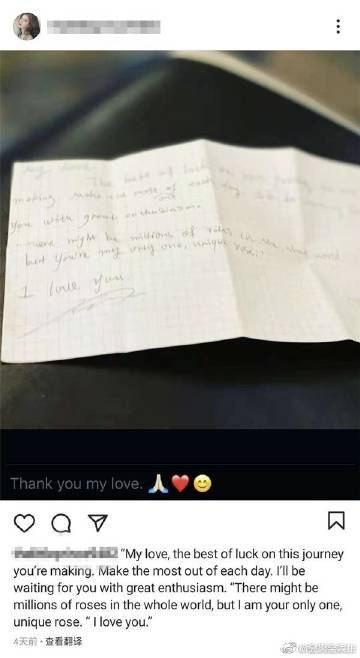 making. Make the most of each day.
you with great enthusiasm.
might be millions of roses in the
but you're my only one, unique rose.
I love you
Thank you my love. 🙏🏻❤️😊
"My love, the best of luck on this journey
you're making. Make the most out of each day. I'll be
waiting for you with great enthusiasm. "There might be
millions of roses in the whole world, but I am your only one,
unique rose. " I love you."
4天前 · 查看翻译